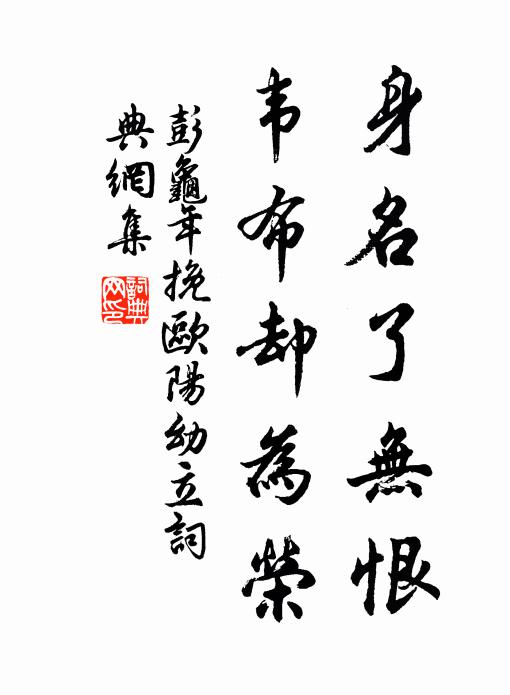 身名了無恨
韦布却為榮
彭龜年挽歐陽幼立詞
典網集
詞典网印